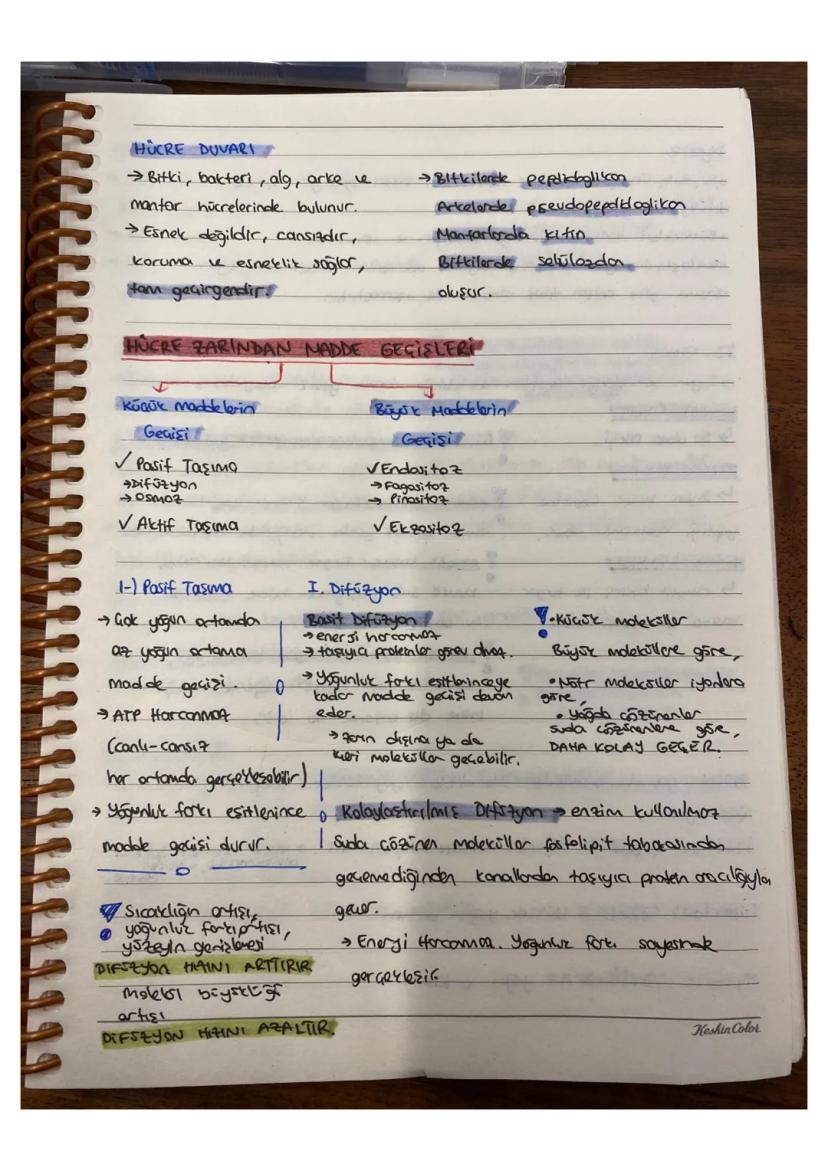 HÜCRE DUVARI
→ Bitki, bakteri, alg, arke ve
mantar hücrelerinde bulunur.
→ Esnek değildir, cansızdır,
koruma ve esneklik sağlar,
tam geçirgendir.
→ Bitkilerde peptidoglikan
Arkelerde pseudopeptidoglikan
Mantarlarda kitin
Bitkilerde selülozdan
oluşur.
HÜCRE ZARINDAN MADDE GEÇİŞLERİ
Küçük Maddelerin
Geçişi
✓ Pasif Taşıma
→ Difüzyon
→ Osmoz
✓ Aktif Taşıma
Büyük Maddelerin
Geçişi
✓ Endositoz
→ Fagositoz
→ Pinositoz
✓ Ekzositoz
1-) Pasif Taşıma
→ Çok yoğun ortamdan
az yoğun ortama
madde geçişi.
→ ATP Harcanmaz
(canlı-cansız
her ortamda gerçekleşebilir)
→ Yoğunluk farkı eşitlenince
madde geçişi durur.
Sıcaklığın artışı,
yoğunluk farkı artışı,
yüzeyin genişlemesi
DİFÜZYON HIZINI ARTTIRIR
molekül büyüklüğü
artışı
DİFÜZYON HIZINI AZALTIR.
I. Difüzyon
Basit Difüzyon
→ enerji harcanmaz
→ taşıyıcı proteinler görev almaz.
→ Yoğunluk farkı eşitleninceye
kadar madde geçişi devam
eder.
→ zarın dışına ya da
içeri moleküller geçebilir.
• Küçük moleküller
Büyük moleküllere göre,
• Nötr moleküller iyonlara
göre,
• Yağda çözünenler
suda çözünenlere göre,
DAHA KOLAY GEÇER.
Kolaylaştırılmış Difüzyon → enzim kullanılmaz
Suda çözünen moleküller fosfolipit tabakasından
geçemediğinden kanallardan taşıyıcı protein aracılığıyla
geçer.
→ Enerji Harcanmaz. Yoğunluk farkı
gerçekleşir.
KeskinColor